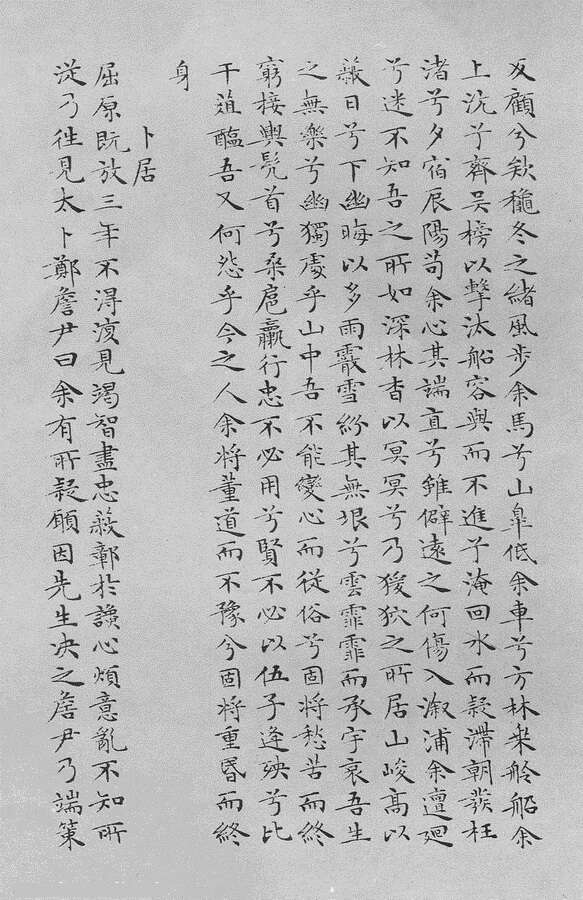 反顧兮欸穐冬之緒風步余馬兮山臯低余車兮方林椉舲船余
上沅兮齊吳榜以擊汰船容與而不進兮淹回水而疑滯朝發枉
渚兮夕宿辰陽苟余心其端直兮雖僻遠之何傷入溆浦余邅廻
兮迷不知吾之所如深林杳以冥冥兮乃猨狖之所居山峻高以
蔽日兮下幽晦以多雨霰雪紛其無垠兮雲霏霏而承宇哀吾生
之無樂兮幽獨處乎山中吾不能變心而從俗兮固將愁苦而終
窮接輿髡首兮桑扈臝行忠不必用兮賢不必以伍子逢殃兮比
干菹醢吾又何怨乎今之人余將董道而不豫兮固將重昬而終
身
卜居
屈原既放三年不得復見竭智盡忠蔽鄣於讒心煩意亂不知所
從乃往見太卜鄭詹尹曰余有所疑願因先生决之詹尹乃端策